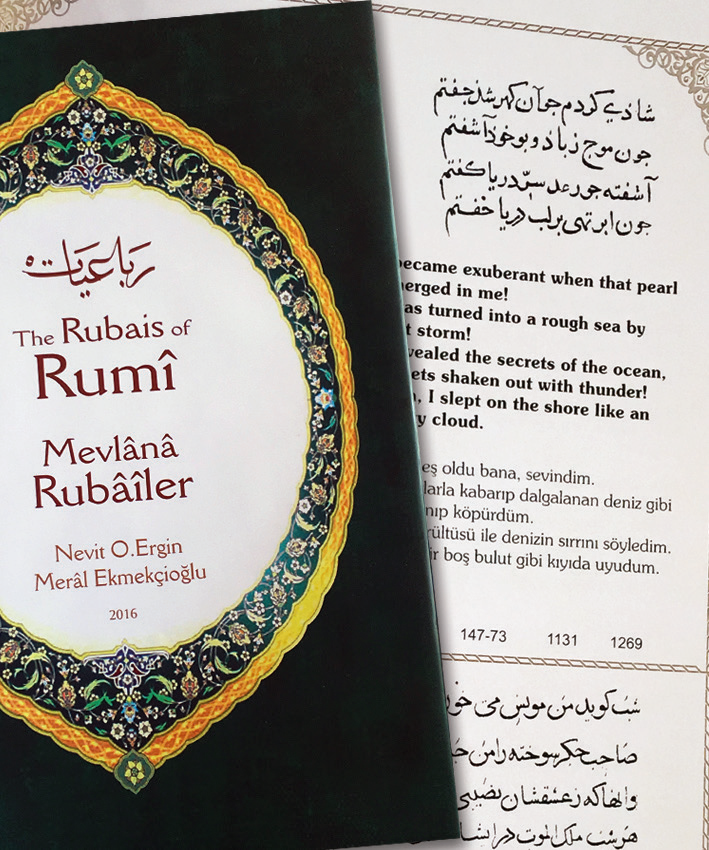 رباعيات
The Rubais of
Rumî
Mevlânâ
Rubâîler
Nevit O.Ergin
Merâl Ekmekçioğlu
2016
شاذي كردم جو آن كهر شذ جفتم
جون موج زباد و بوخوذ آشفتم
آشفته جو رعد سرّ دريا كفتم
جون ابر تهى بر لب دريا خفتم
became exuberant when that pearl
erged in me!
as turned into a rough sea by
t storm!
vealed the secrets of the ocean,
ets shaken out with thunder!
, I slept on the shore like an
y cloud.
eş oldu bana, sevindim.
larla kabarıp dalgalanan deniz gibi
nıp köpürdüm.
rültüsü ile denizin sırrını söyledim.
ir boş bulut gibi kıyıda uyudum.
147-73 1131 1269
شب كويد من مونس مى
صاحب جكر سوخته رامن
وانهاكه زعشقشان نصيبى
هر شب ملك الموت در